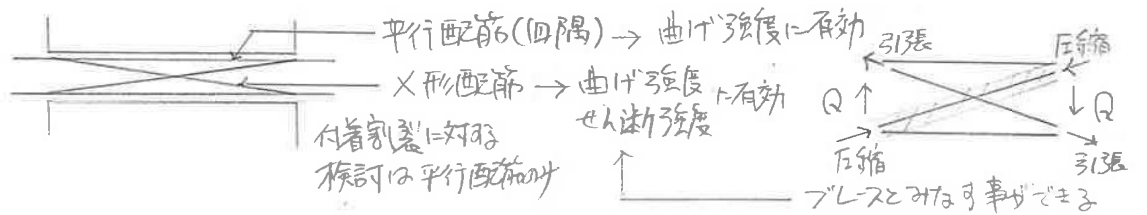 平行配筋(四隅) → 曲げ強度に有効
X形配筋 → 曲げ強度
せん断強度 に有効
付着割裂に対する
検討は平行配筋のみ
ブレースとみなす事ができる
引張
圧縮
Q
Q
圧縮
引張